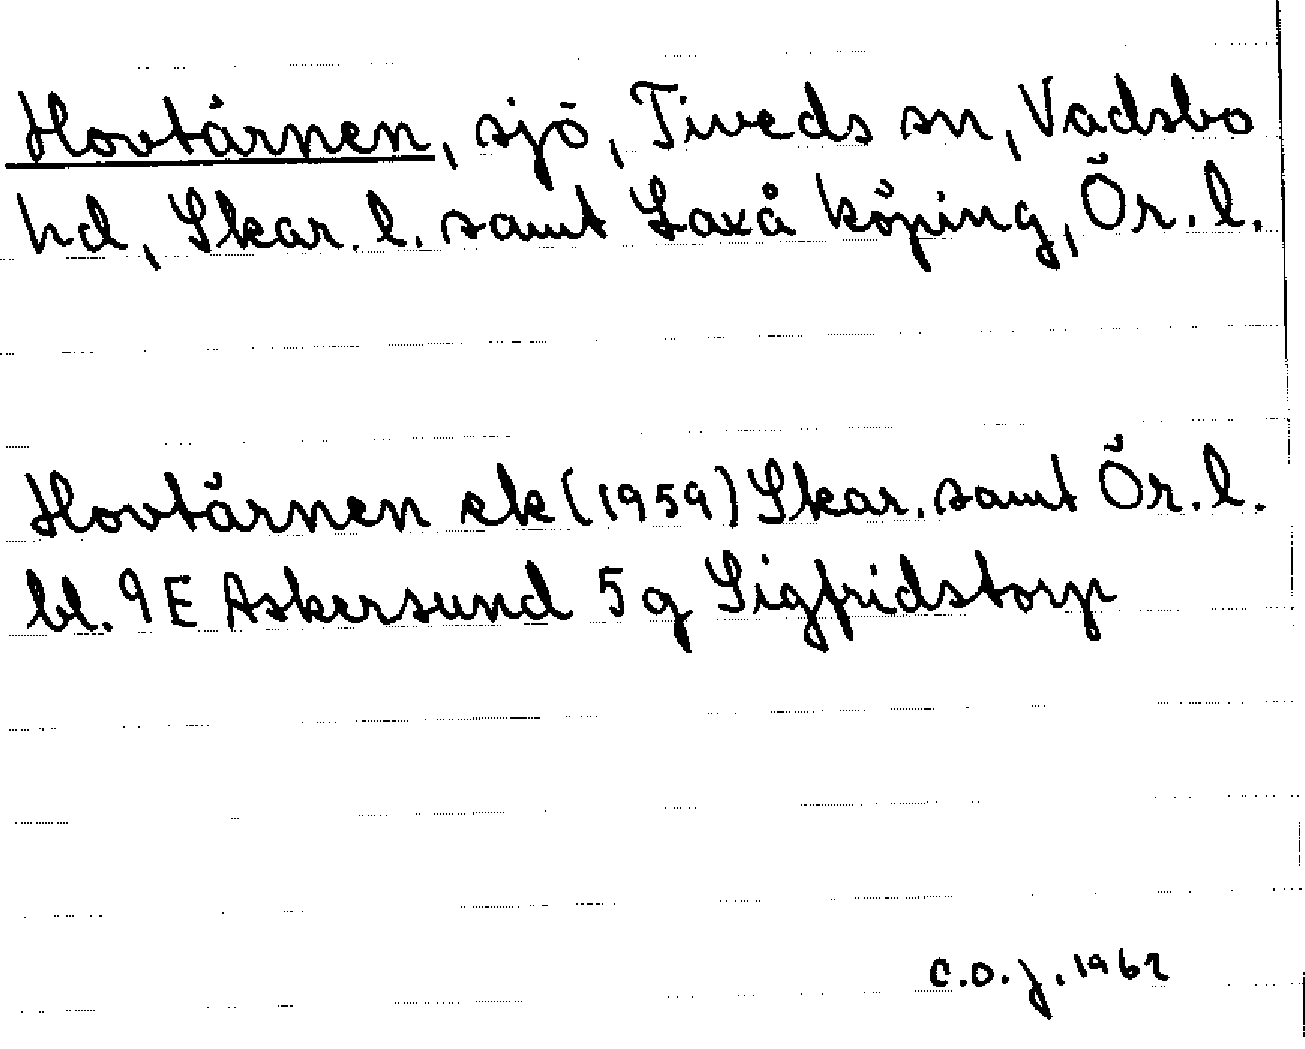 Hovtärnen, sjö, Tiveds sn, Vadsbo
hd, Skar. l. samt Laxå köping, Ör. l.
Hovtärnen ek (1959) Skar. samt Ör. l.
bl. 9E Askersund 5g Sigfridstorp
C.O.J. 1962